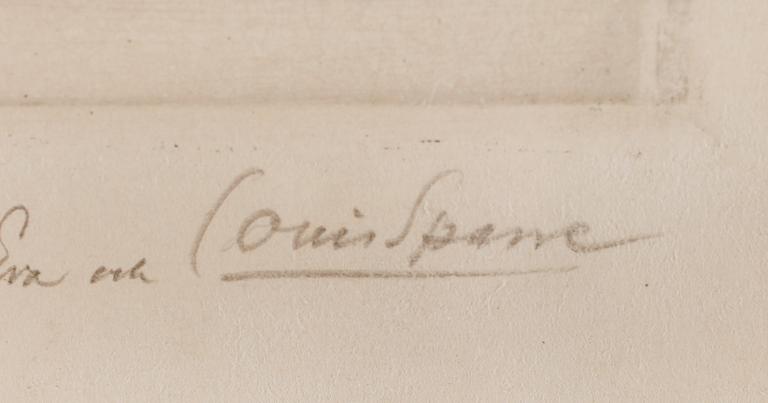 Eva och Louis Sparre